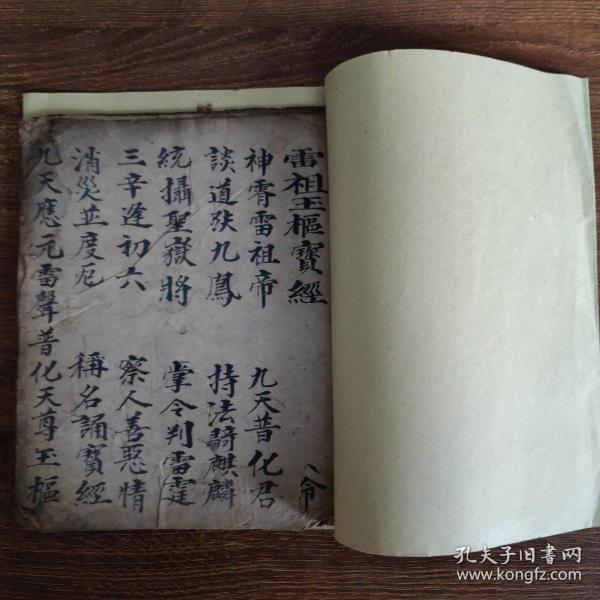 雷祖玉樞寳經
神霄雷祖帝 九天普化君
談道趺九鳳 持法騎麒麟
統攝聖嶽將 掌令判雷霆
三辛逢初六 察人善惡情
消災並度厄 稱名誦寳經
九天應元雷聲普化天尊玉樞
孔夫子旧书网
www.kongfz.com